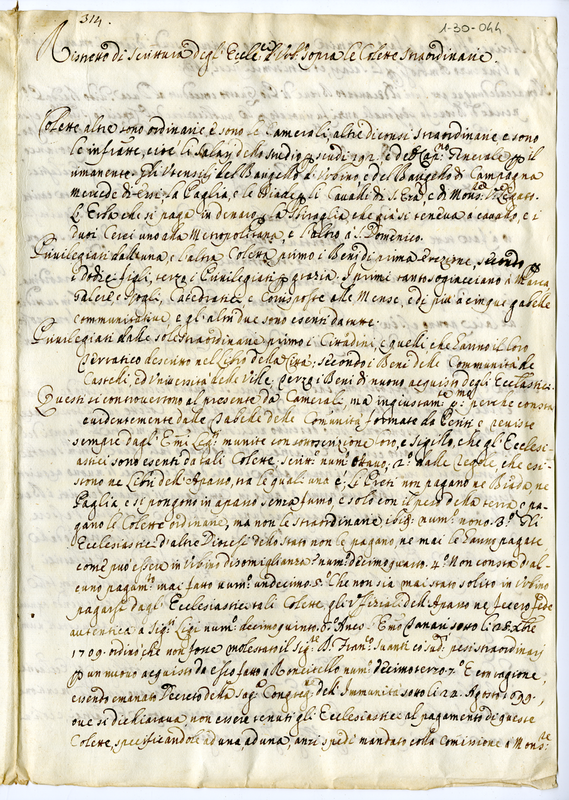 314.
1-30-044
Ristretto di Scrittura degl' Eccl.ci d'Urb.o sopra le Colette straordinarie.
Colette altre sono ordinarie e sono le Camerali, altre diconsi straordinarie e sono
le infratte, cioè li Salarj dello studio p scudi 292. e del Cap.no Generale p il
rimanente. Gli Utensilj del Baugello di Urbino e del Baugello di Campagna
mercede di Essi, la Paglia, e le Biade p li Cavalli di S. Em.a e di Mons.r
L' Erba che si paga in denaro p la che già si teneva a cavallo, e i
duoi Cerei uno alla Metropolitana, e l'altro a S. Domenico.
Privilegiati dall'una, e l'altra Coletta primo i Beni di prima Erezione, secondo p
i dodici figli, terzo i Privilegiati p grazia. I primi tanto sogiacciono a
Galere e Spogli, Catedratici e Composte alle Mense, e di più a cinque gabelle
communitative, e gl' altri due sono esenti da tutte.
Privilegiati dalle sole straordinarie primo i Cittadini, e quelli che hanno il loro
descritto nel Libro della Città: secondo i Beni delle Communità de
Castelli, ed Università delle Ville. Terzo i Beni di nuovo acquisto degli Ecclastici.
Questi si controvertono al presente da Camerali, ma ingiustam.te p.mo perche consta
evidentemente dalle Tabelle delle Comunità formate da Periti e reviste
sempre dagl' Em.i Leg.i munite con sottoscrizione loro, e sigillo, che gl' Eccle-
siastici sono esenti da tali Colette, scritt.e num.o ottavo, 2.o dalle Regole, che esi-
stono ne Libri dell'Apasso, tra le quali una è: Li Preti non pagano ne Biada ne
Paglia, e si pongono in apasso senza fumo, e solo con il peso della terra e pa-
gano le Colette ordinarie, ma non le straordinarie num.o nono. 3.o Gli
Ecclesiastici d'altre Diocesi dello Stato non le pagano, ne mai le hanno pagate
com'è può essere in Urbino disomiglianza? num.o decimo quarto. 4.o Non consta d'al-
cuno pagam.to mai fatto num.o undecimo. 5.o Che non sia mai stato solito in Urbino
pagarsi dagl' Ecclesiastici tali Colette, gli ufficiali dell'Apasso ne fecero fede
autentica a Sig.ri num.o decimo quinto. 6.o l'Em.o Tanari sotto li 28
1709. ordinò che non fosse molestato il Sig.r D. Fran.co pesi straordinarj
p un nuovo acquisto da esso fatto a Roncitello num.o decimo terzo. 7.o E con ragione,
essendo emanato Decreto della Sag.a Congreg.e dell'Immunità sotto li 22. Agosto 1699.
ove si dichiarava non essere tenuti gl' Ecclesiastici al pagamento di queste
Colette, specificandole ad una, ad una, anzi spedì mandato colla comissione a Mons.re